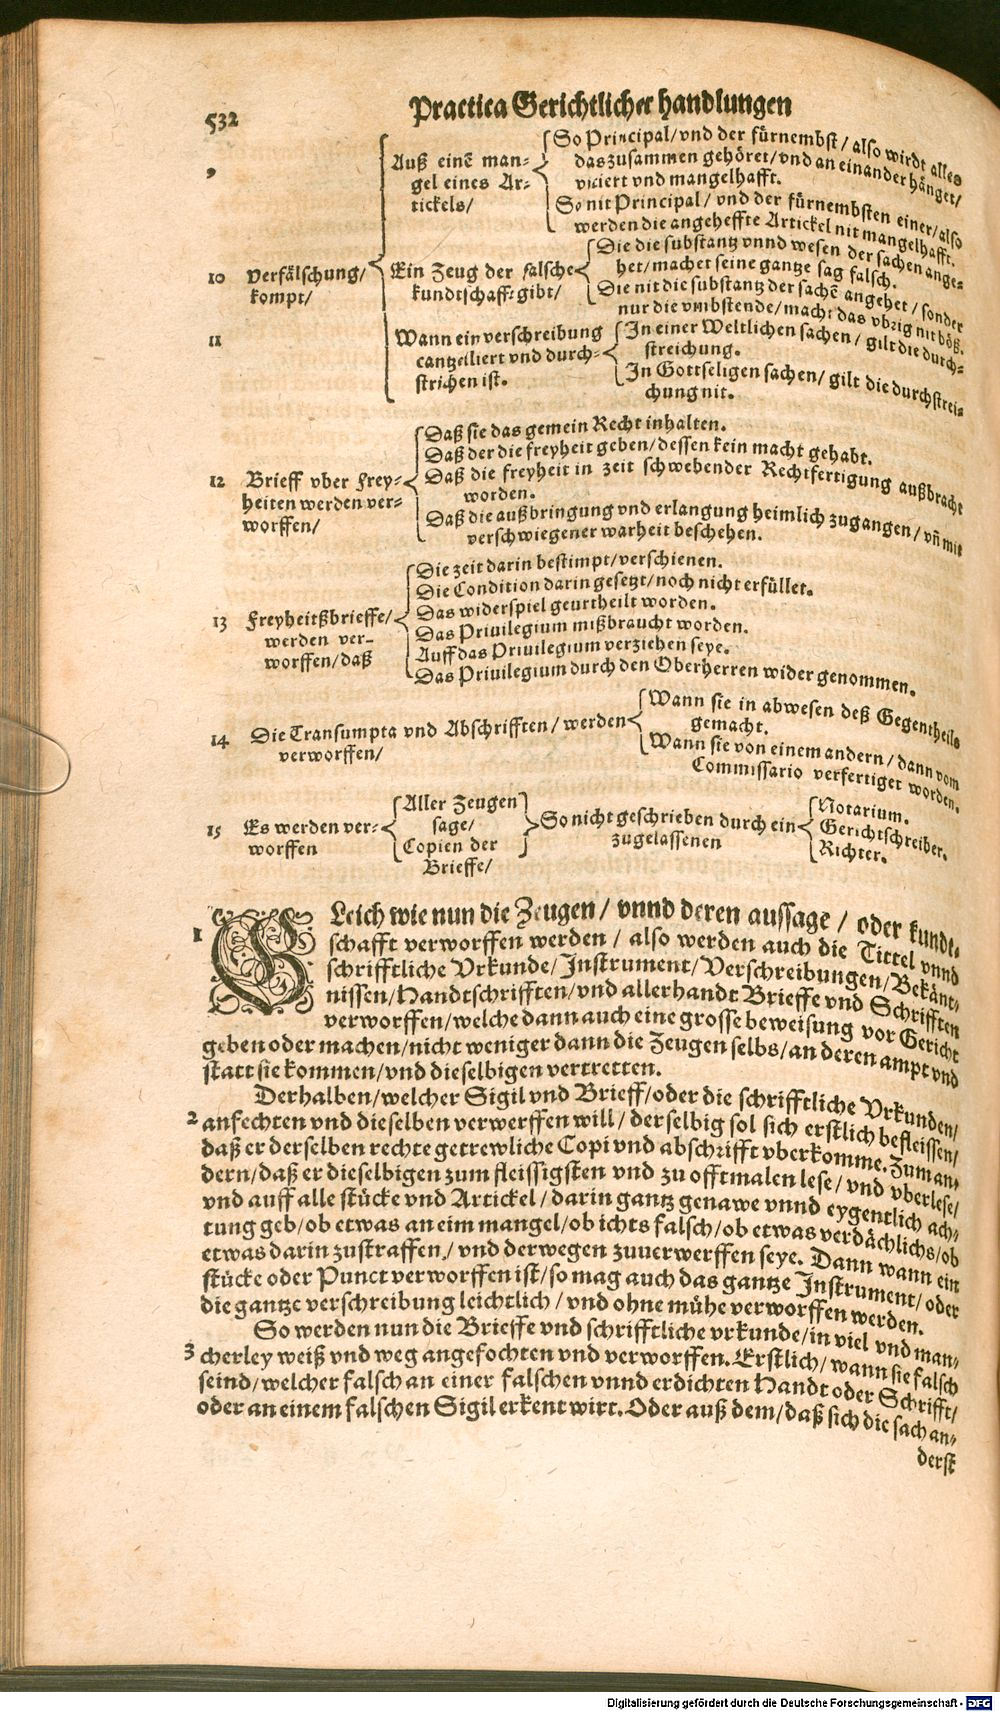 532
Practica Gerichtlicher handlungen
9
Auß einē man-
gel eines Ar-
tickels/
So Principal/vnd der fürnembst/also wirdt alles
das zusammen gehöret/vnd an einander hänget/
viciert vnd mangelhafft.
So nit Principal/vnd der fürnembsten einer/also
werden die angeheffte Artickel nit mangelhafft.
10 Verfälschung/
kompt/
Ein Zeug der falsche
kundtschafft gibt/
Die die substantz vnnd wesen der sachen ange-
het/machet seine gantze sag falsch.
Die nit die substantz der sachē angehet/sonder
nur die vmbstende/macht das vbrig nit böß.
11
Wann ein verschreibung
cantzelliert vnd durch-
strichen ist.
In einer Weltlichen sachen/gilt die durch-
streichung.
In Gottseligen sachen/gilt die durchstrei-
chung nit.
12 Brieff vber Frey-
heiten werden ver-
worffen/
Daß sie das gemein Recht inhalten.
Daß der die freyheit geben/dessen kein macht gehabt.
Daß die freyheit in zeit schwebender Rechtfertigung außbracht
worden.
Daß die außbringung vnd erlangung heimlich zugangen/vn̄ mit
verschwiegener warheit beschehen.
13 Freyheitßbrieffe/
werden ver-
worffen/daß
Die zeit darin bestimpt/verschienen.
Die Condition darin gesetzt/noch nicht erfüllet.
Das widerspiel geurtheilt worden.
Das Priuilegium mißbraucht worden.
Auff das Priuilegium verziehen seye.
Das Priuilegium durch den Oberherren wider genommen.
14 Die Transumpta vnd Abschrifften/werden
verworffen/
Wann sie in abwesen deß Gegentheils
gemacht.
Wann sie von einem andern/dann vom
Commissario verfertiget worden.
15 Es werden ver-
worffen
Aller Zeugen
sage/
Copien der
Brieffe/
So nicht geschrieben durch ein
zugelassenen
Notarium.
Gerichtschreiber.
Richter.
1 GLeich wie nun die Zeugen/vnnd deren aussage/oder kundt-
schafft verworffen werden/also werden auch die Tittel vnnd
schrifftliche Vrkunde/Instrument/Verschreibungen/Bekänt-
nissen/Handtschrifften/vnd allerhandt Brieffe vnd Schrifften
verworffen/welche dann auch eine grosse beweisung vor Gericht
geben oder machen/nicht weniger dann die Zeugen selbs/an deren ampt vnd
statt sie kommen/vnd dieselbigen vertretten.
Derhalben/welcher Sigil vnd Brieff/oder die schrifftliche Vrkunden/
2 anfechten vnd dieselben verwerffen will/derselbig sol sich erstlich befleissen/
daß er derselben rechte getrewliche Copi vnd abschrifft vberkomme. Zum an-
dern/daß er dieselbigen zum fleissigsten vnd zu offtmalen lese/vnd vberlese/
vnd auff alle stücke vnd Artickel/darin gantz genawe vnnd eygentlich ach-
tung geb/ob etwas an eim mangel/ob ichts falsch/ob etwas verdächlichs/ob
etwas darin zustraffen/vnd derwegen zuuerwerffen seye. Dann wann ein
stücke oder Punct verworffen ist/so mag auch das gantze Instrument/oder
die gantze verschreibung leichtlich/vnd ohne mühe verworffen werden.
So werden nun die Brieffe vnd schrifftliche vrkunde/in viel vnd man-
3 cherley weiß vnd weg angefochten vnd verworffen. Erstlich/wann sie falsch
seind/welcher falsch an einer falschen vnnd erdichten Handt oder Schrifft/
oder an einem falschen Sigil erkent wirt. Oder auß dem/daß sich die sach an-
derst
Digitalisierung gefördert durch die Deutsche Forschungsgemeinschaft - DFG